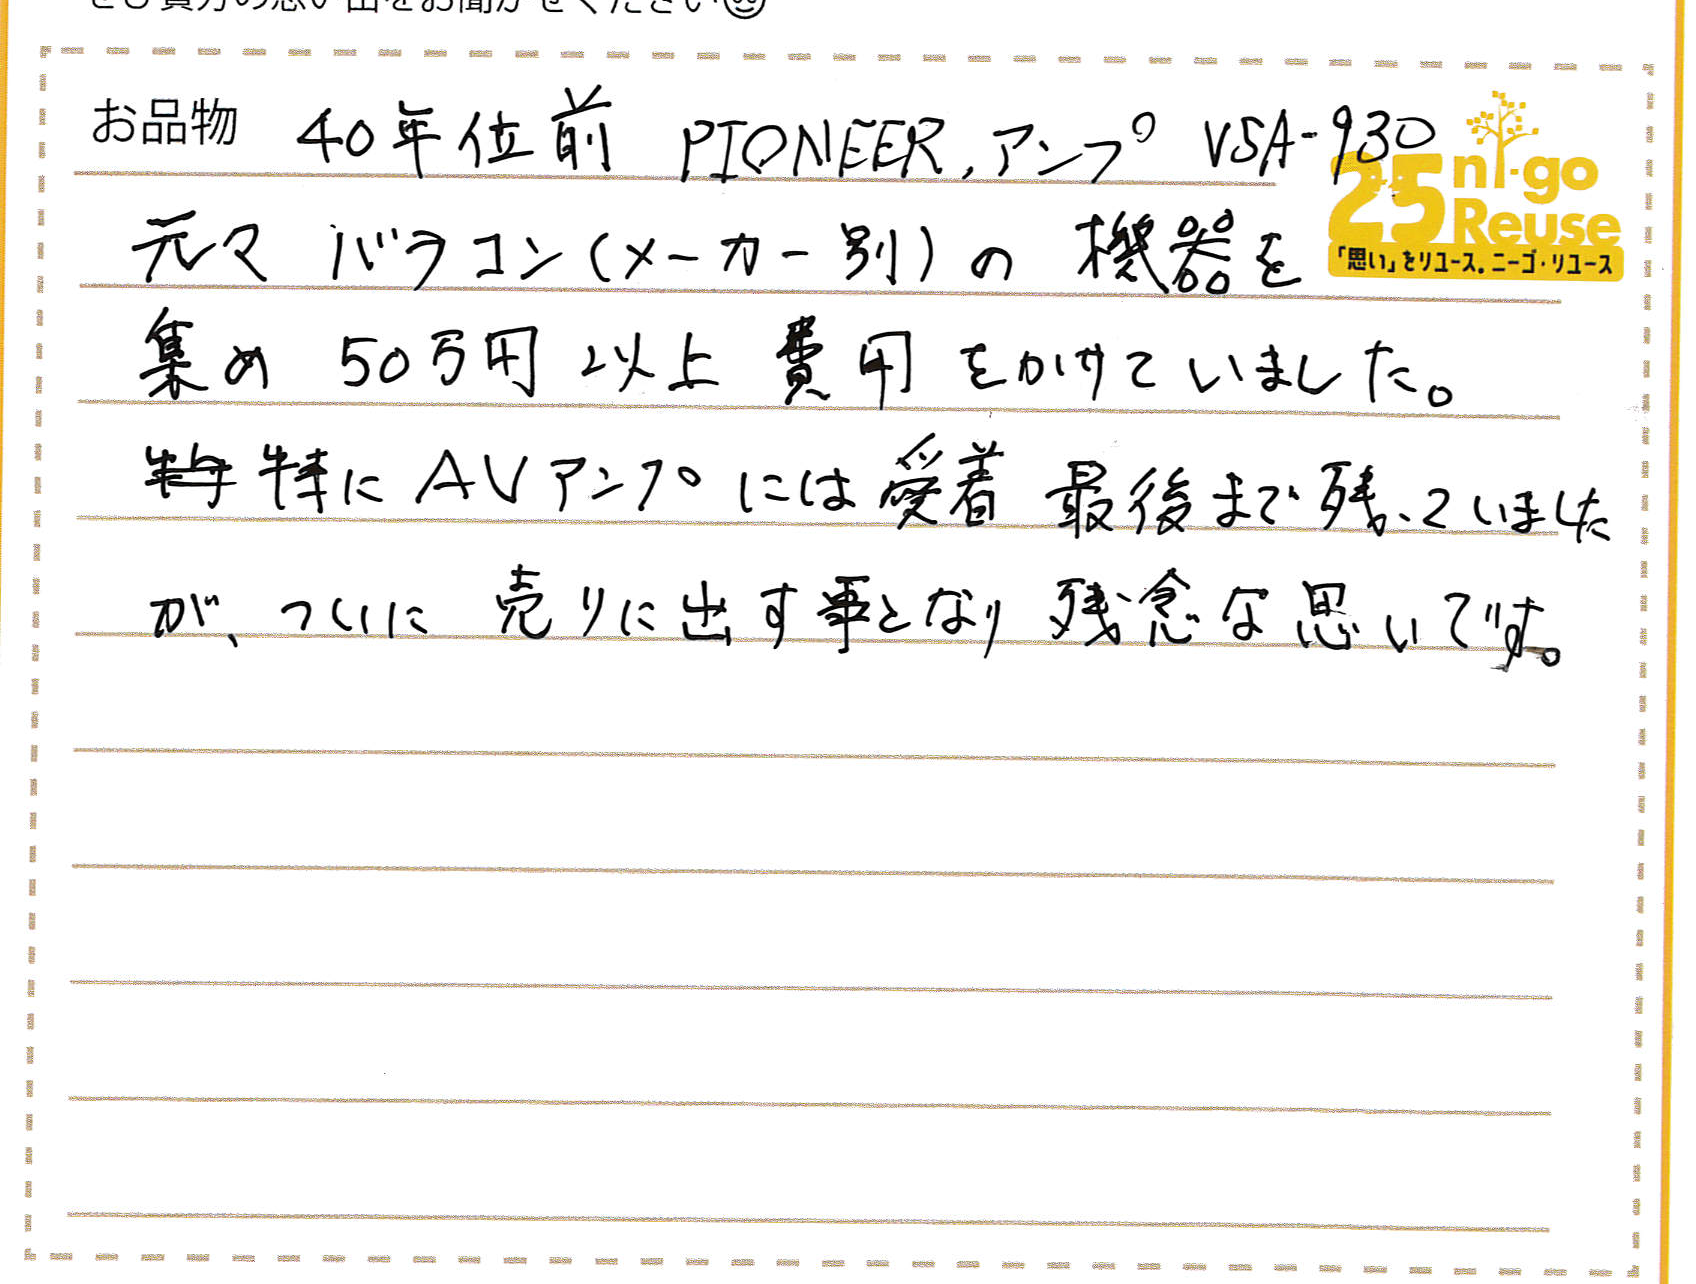 ぜひ貴方の思い出をお聞かせください
お品物 40年位前 PIONEER,アンプ VSA-930
25 ni-go Reuse
「思い」をリユース。ニーゴ・リユース
元々 バラコン(メーカー別)の 機器を
集め 50万円 以上 費用 をかけていました。
特に AVアンプには愛着 最後まで残っていました
が、ついに 売りに出す事となり 残念な思いです。